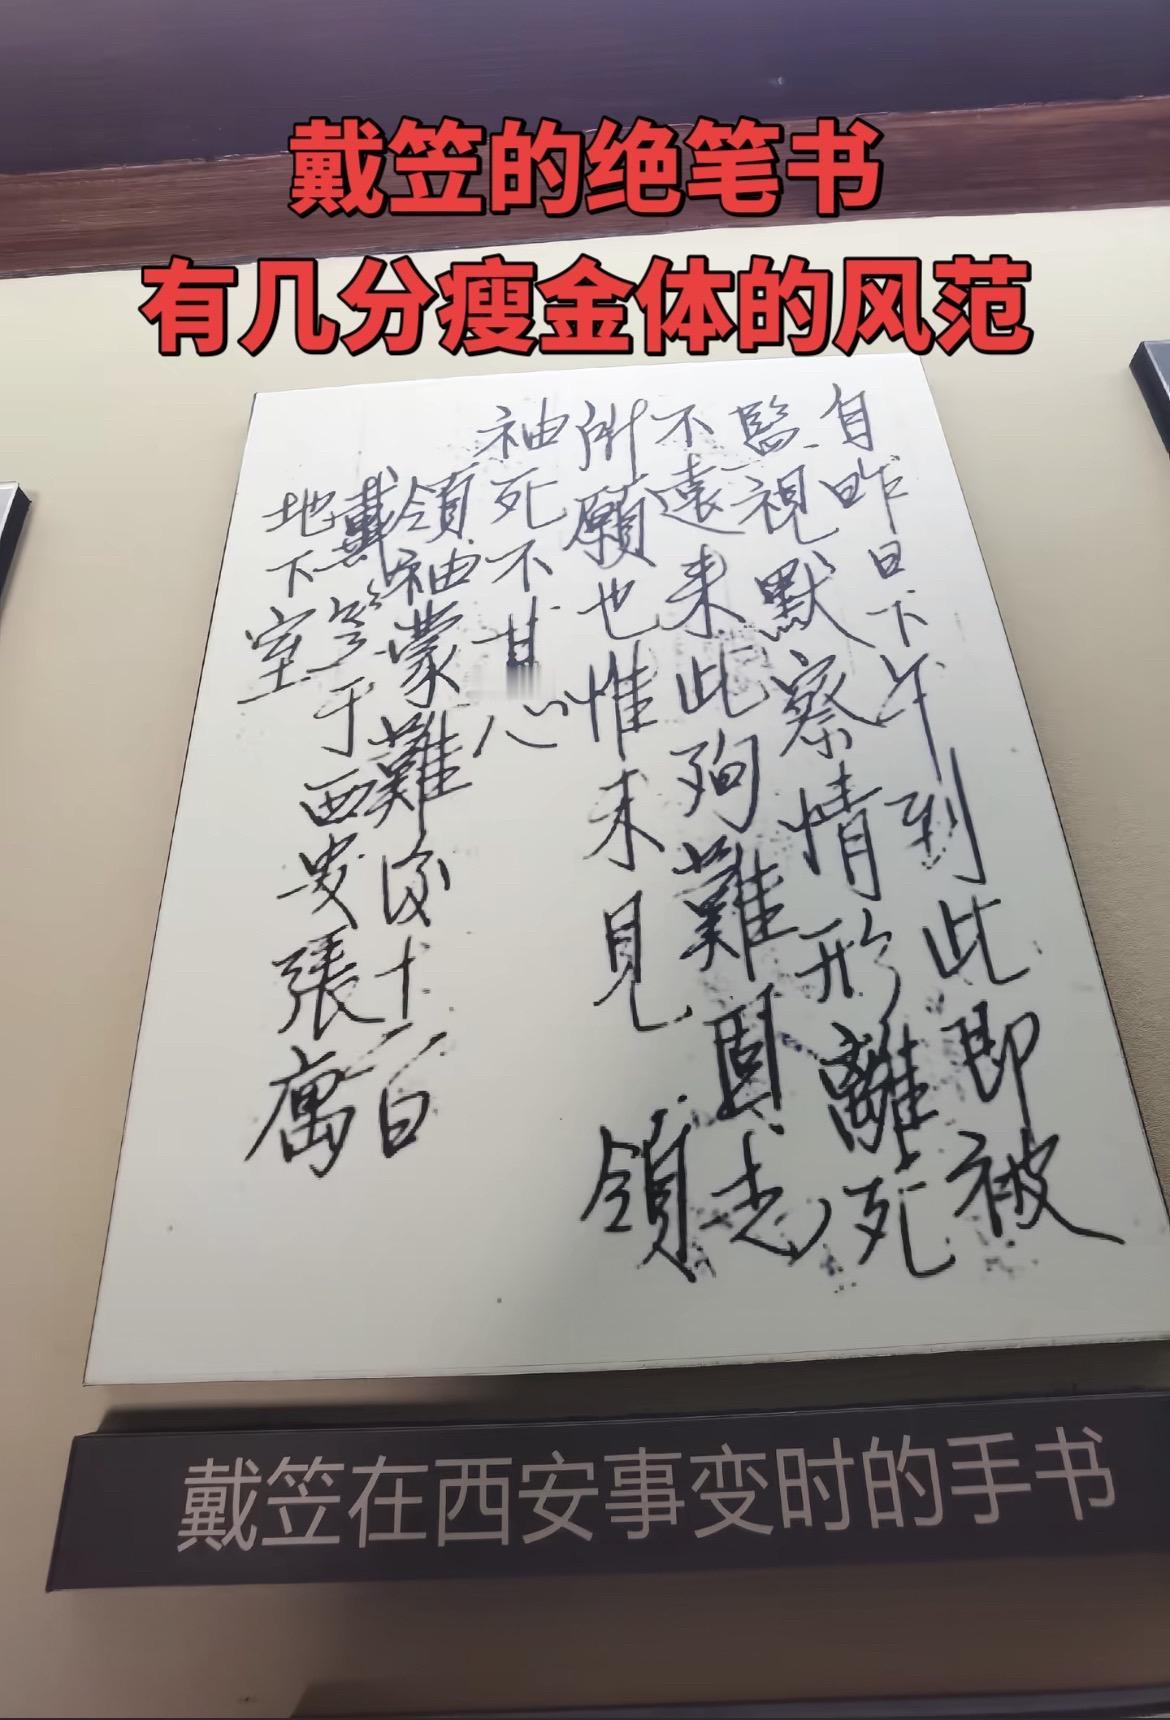 戴笠的绝笔书
有几分瘦金体的风范
自昨日下午到此即被
監視默察情形離死
不遠来此殉難固志
所願也惟未見領
袖死不甘心
領袖蒙難後十一日
戴笠于西安張寓
地下室
戴笠在西安事变时的手书